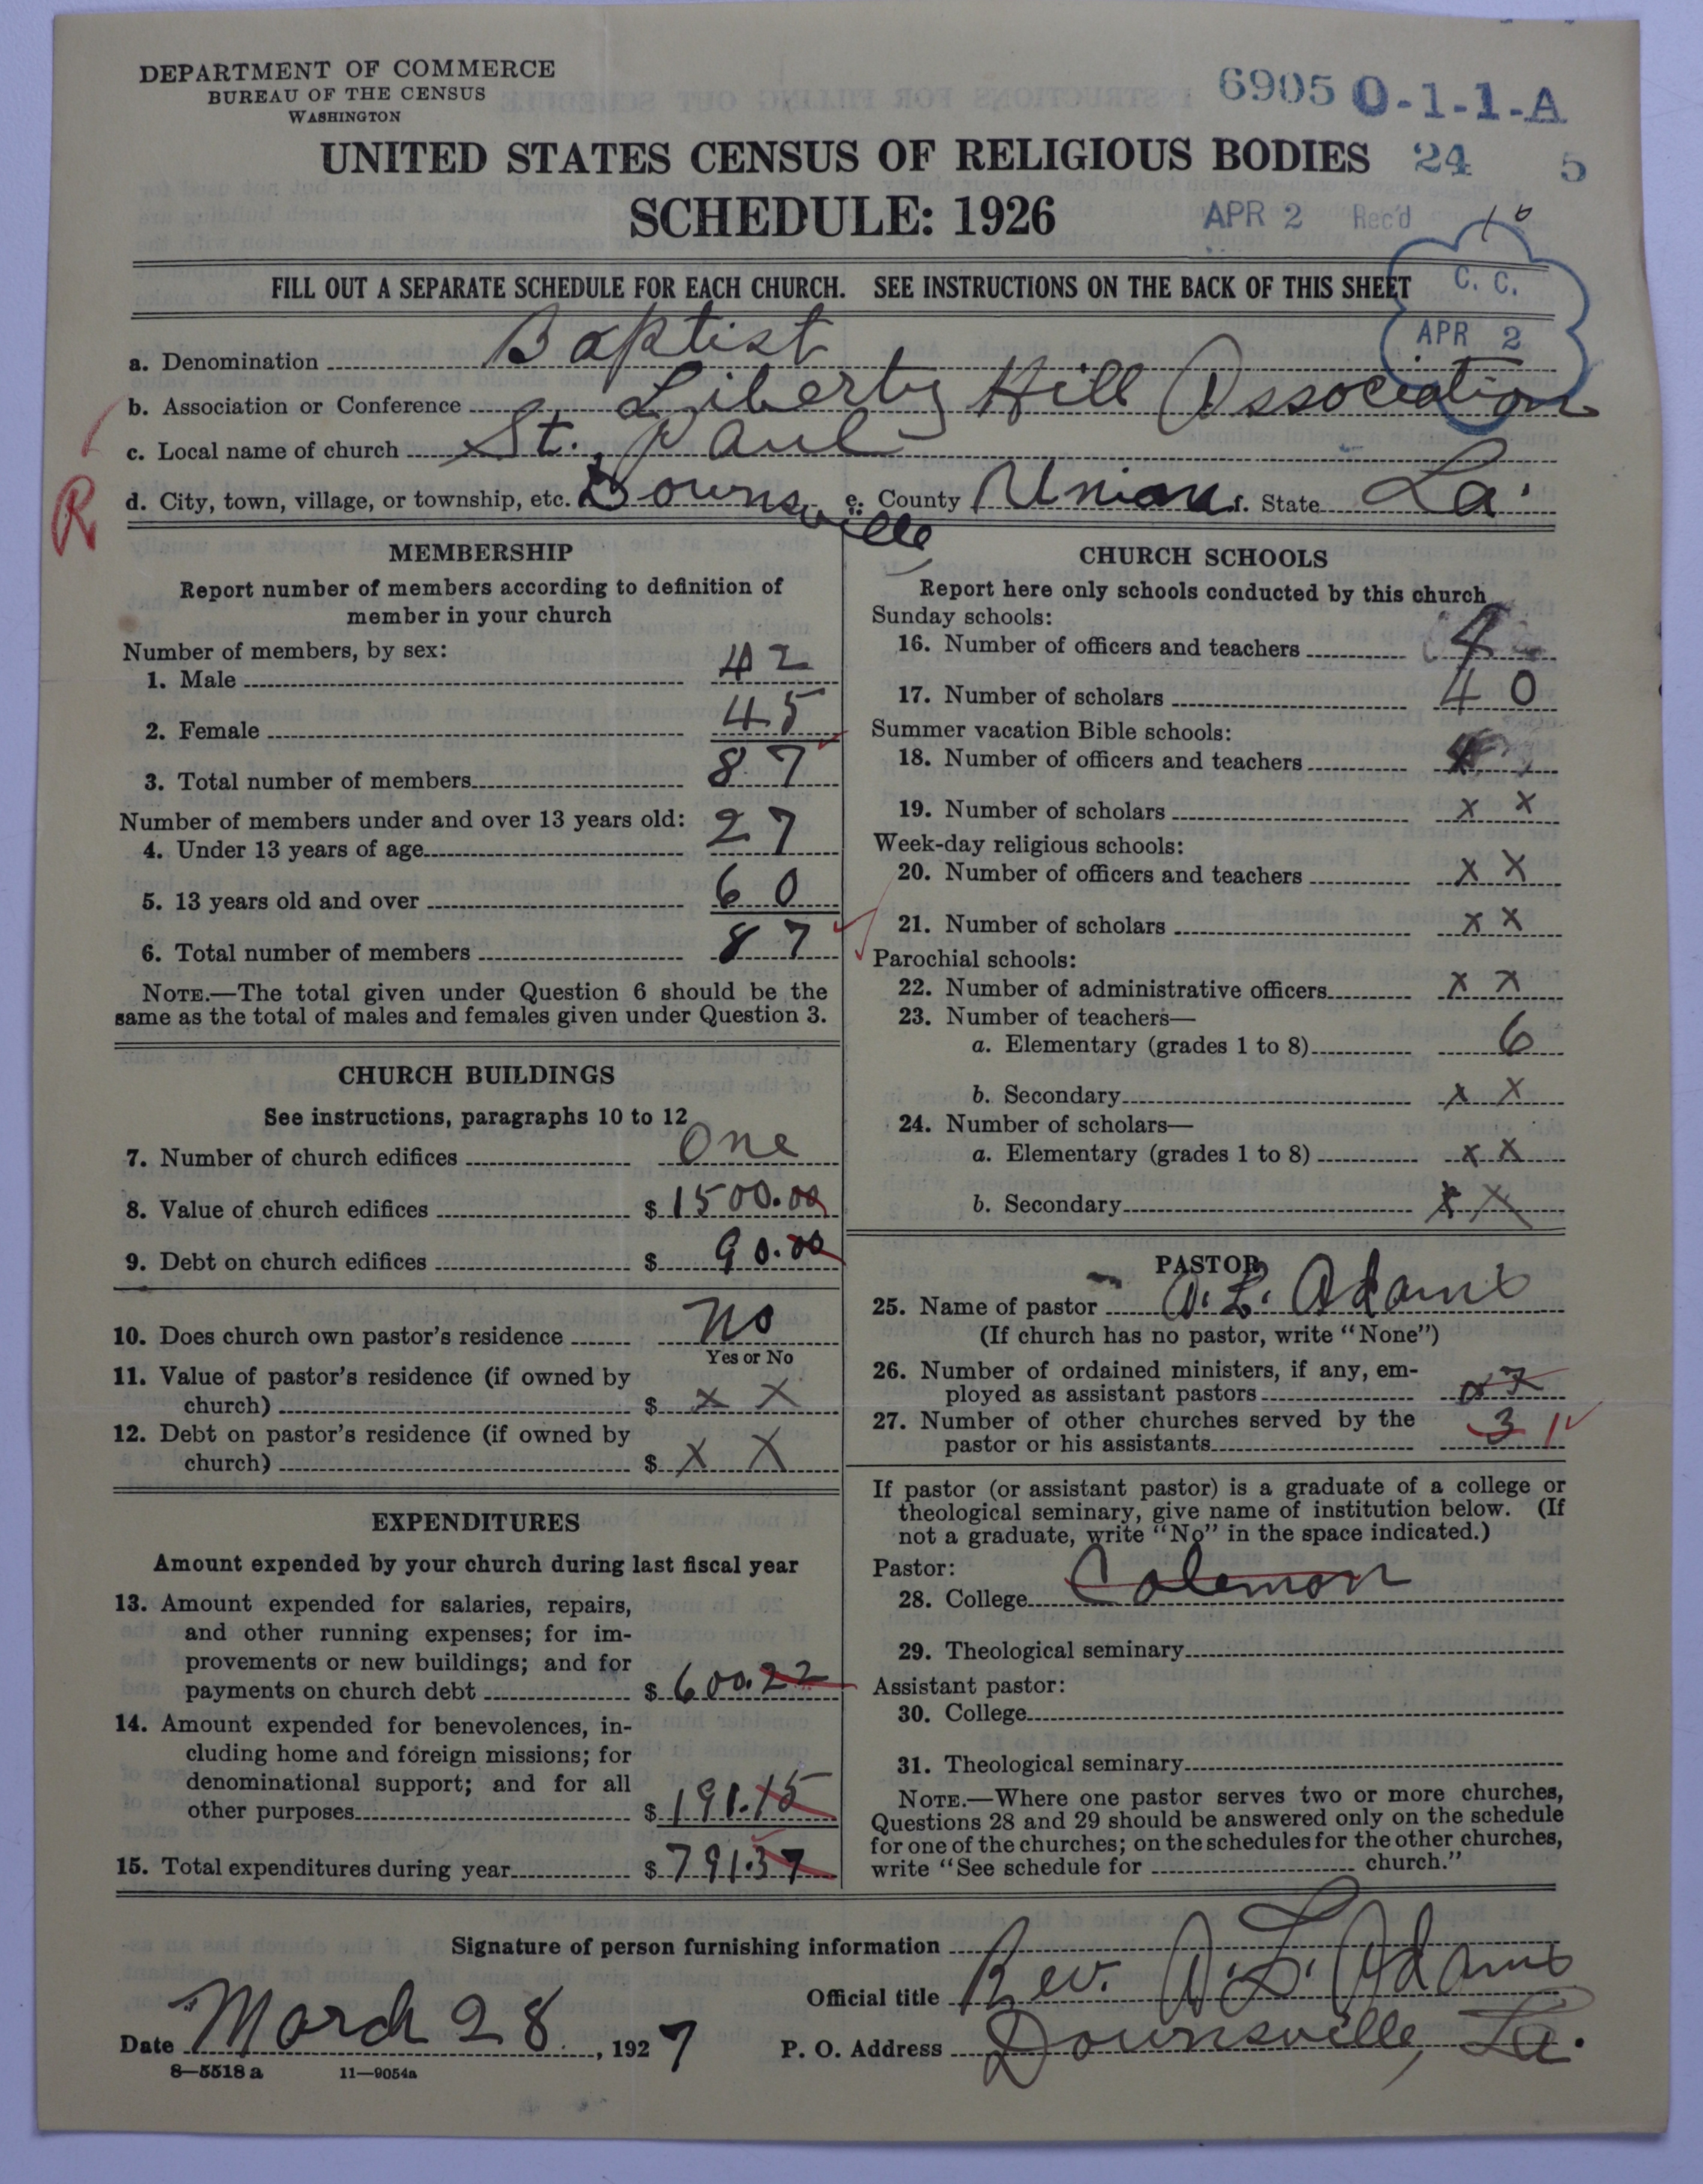 DEPARTMENT OF COMMERCE
BUREAU OF THE CENSUS
WASHINGTON
6905 O-1-1-A
UNITED STATES CENSUS OF RELIGIOUS BODIES
24 5
SCHEDULE: 1926
APR 2 Rec'd
FILL OUT A SEPARATE SCHEDULE FOR EACH CHURCH. SEE INSTRUCTIONS ON THE BACK OF THIS SHEET
C. C.
APR 2
a. Denomination Baptist
b. Association or Conference Liberty Hill Association
c. Local name of church St. Paul
R
d. City, town, village, or township, etc. Downsville, e. County Union f. State La.
MEMBERSHIP
Report number of members according to definition of
member in your church
Number of members, by sex:
1. Male 42
2. Female 45
3. Total number of members 87
Number of members under and over 13 years old:
4. Under 13 years of age 27
5. 13 years old and over 60
6. Total number of members 87
NOTE.—The total given under Question 6 should be the
same as the total of males and females given under Question 3.
CHURCH BUILDINGS
See instructions, paragraphs 10 to 12
7. Number of church edifices One
8. Value of church edifices $ 1500.00
9. Debt on church edifices $ 90.00
10. Does church own pastor's residence No
Yes or No
11. Value of pastor's residence (if owned by
church) $ x x
12. Debt on pastor's residence (if owned by
church) $ x x
EXPENDITURES
Amount expended by your church during last fiscal year
13. Amount expended for salaries, repairs,
and other running expenses; for im-
provements or new buildings; and for
payments on church debt $ 600.22
14. Amount expended for benevolences, in-
cluding home and foreign missions; for
denominational support; and for all
other purposes $ 191.15
15. Total expenditures during year $ 791.37
CHURCH SCHOOLS
Report here only schools conducted by this church
Sunday schools:
16. Number of officers and teachers 4
17. Number of scholars 40
Summer vacation Bible schools:
18. Number of officers and teachers
19. Number of scholars x x
Week-day religious schools:
20. Number of officers and teachers x x
21. Number of scholars x x
Parochial schools:
22. Number of administrative officers x x
23. Number of teachers—
a. Elementary (grades 1 to 8) 6
b. Secondary x x
24. Number of scholars—
a. Elementary (grades 1 to 8) x x
b. Secondary x x
PASTOR
25. Name of pastor A. L. Adams
(If church has no pastor, write "None")
26. Number of ordained ministers, if any, em-
ployed as assistant pastors
27. Number of other churches served by the
pastor or his assistants 3
If pastor (or assistant pastor) is a graduate of a college or
theological seminary, give name of institution below. (If
not a graduate, write "No" in the space indicated.)
Pastor:
28. College Coleman
29. Theological seminary
Assistant pastor:
30. College
31. Theological seminary
NOTE.—Where one pastor serves two or more churches,
Questions 28 and 29 should be answered only on the schedule
for one of the churches; on the schedules for the other churches,
write "See schedule for church."
Signature of person furnishing information
Official title Rev. A. L. Adams
Date March 28, 1927 P. O. Address Downsville, La.
8—5518 a 11—9054a